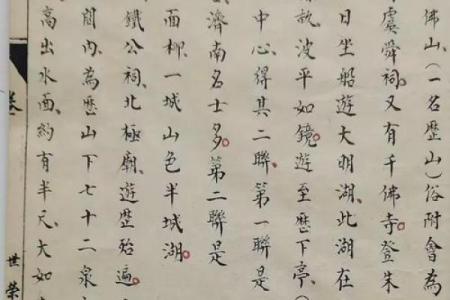 佛山、(一名歷山)俗附會為
虞舜祠、又有千佛寺、登朱
日坐船遊大明湖、此湖在
執、波平如鏡。遊至歷下亭、(
中心、得其二聯、第一聯是
濟南名士多。第二聯是
面柳、一城山色半城湖。
鐵公祠、北極廟、遊歷殆遍。
閣內、為歷山下七十二泉
高出水面、約有半尺、大如
世榮